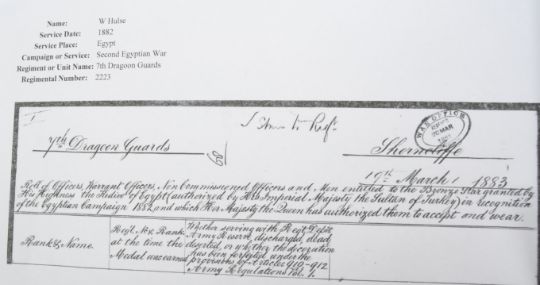 Name: W Hulse
Service Date: 1882
Service Place: Egypt
Campaign or Service: Second Egyptian War
Regiment or Unit Name: 7th Dragoon Guards
Regimental Number: 2223
7th Dragoon Guards
Shorncliffe
WAR OFFICE
20 MAR
19th March 1883
Roll of Officers, Warrant Officers, Non Commissioned Officers and Men entitled to the Bronze Star granted by
His Highness the Khedive of Egypt (authorized by His Imperial Majesty the Sultan of Turkey) in recognition
of the Egyptian Campaign 1882, and which Her Majesty the Queen has authorized them to accept and wear.
Rank & Name.
Regtl No & Rank
at the time the
Medal was earned
Whether serving with Regt Depôt
Army Reserve, discharged, dead
deserted, or whether the decoration
has been forfeited under the
provisions of Articles 910-912
Army Regulations Vol. 1.